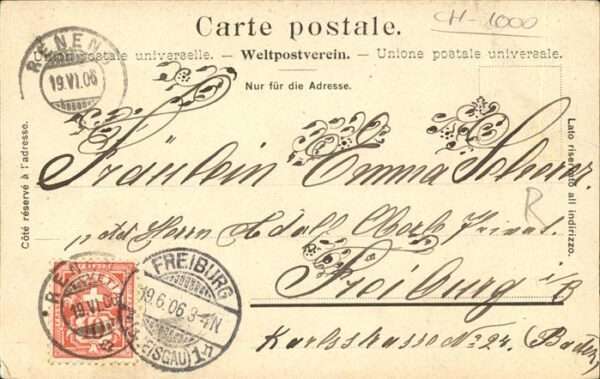 Carte postale.
CH-1000
Union postale universelle. — Weltpostverein. — Unione postale universale.
Nur für die Adresse.
RENENS
19.VI.06
Côté réservé à l'adresse.
Lato riservato all indirizzo.
Fräulein Emma
Herrn Adolf
R
Freiburg i/B
Karlsstrasse No 24. (Baden)
RENENS
19.VI.06
HELVETIA
FREIBURG
19.6.06 3-4N
(BREISGAU) 1